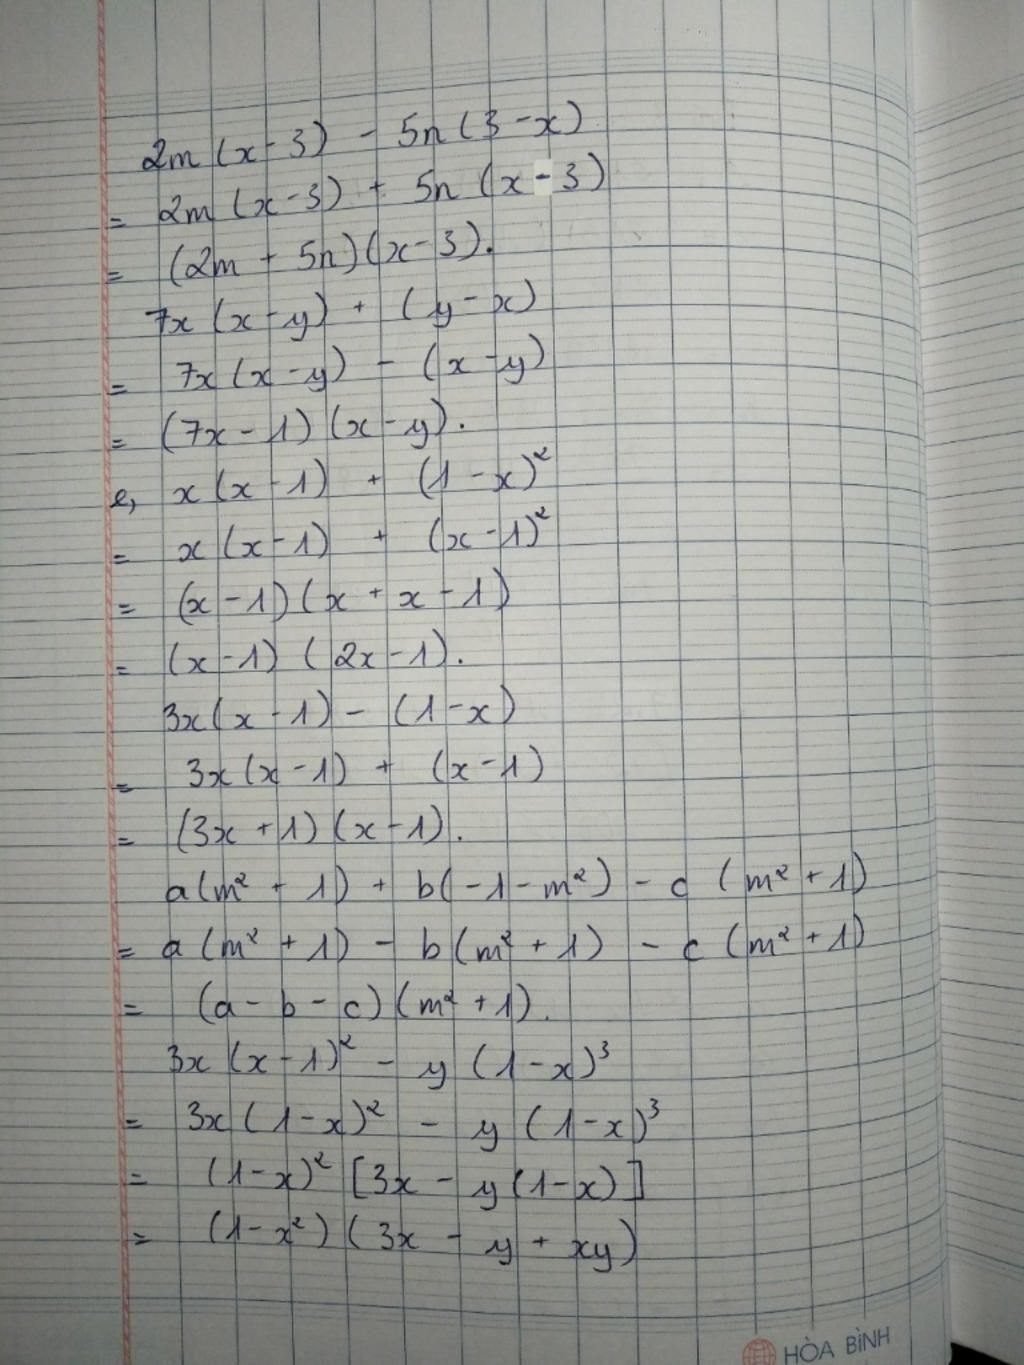 2m (x-3) - 5n (3-x)
= 2m (x-3) + 5n (x-3)
= (2m + 5n)(x-3).
7x (x-y) + (y-x)
= 7x (x-y) - (x-y)
= (7x-1)(x-y).
e, x(x-1) + (1-x)²
= x(x-1) + (x-1)²
= (x-1)(x+x-1)
= (x-1) (2x-1).
3x(x-1) - (1-x)
= 3x(x-1) + (x-1)
= (3x+1)(x-1).
a(m²+1) + b(-1-m²) - c (m²+1)
= a(m²+1) - b(m²+1) - c (m²+1)
= (a-b-c)(m²+1).
3x (x-1)² - y (1-x)³
= 3x(1-x)² - y (1-x)³
= (1-x)² [3x - y(1-x)]
= (1-x²)(3x - y + xy)
HÒA BÌNH